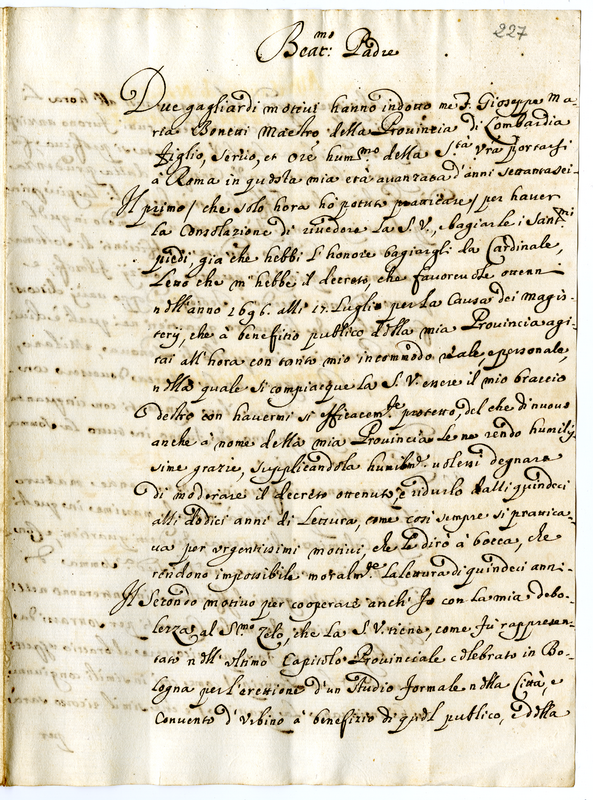 227
Beat.mo Padre
Due gagliardi motivi hanno indotto me F. Gioseppe Ma-
ria Bonetti Maestro della Provincia di Lombardia
figlio, servo, et Ore hum.mo della S.tà V̄ra portarsi
à Roma in questa mia età avanzata d'anni settantasei.
Il primo / che solo hora hò potuto pratticare / per haver
la Consolazione di rivedere la S. V., bagiarle i Sant.mi
piedi, già che hebbi l'honore bagiargli da Cardinale,
che m' hebbe il decreto, che favorevole ottenni
nell'anno 1696. alli 17. Luglio per la Causa dei Magis-
terij, che à benefitio publico della mia Provincia agi-
tai all'hora con tanto mio incommodo reale e personale,
nella quale si compiacque la S. V. essere il mio braccio
destro con havermi sì efficacem.te protetto, del che di nuovo
anche à nome della mia Provincia le ne rendo humilis-
sime grazie, supplicandola humilm.e volersi degnare
di moderare il decreto ottenuto, e ridurlo dalli quindeci
alli dodici anni di Lettura, come così sempre si prattica-
va per urgentissimi motivi, che le dirò à bocca, che
rendono impossibile moralm.te la lettura di quindeci anni.
Il Secondo motivo per cooperare anch' Io con la mia debo-
lezza al S.mo Zelo, che la S. V. tiene, come fù rappresen-
tato nell'ultimo Capitolo Provinciale celebrato in Bo-
logna per l'erettione d'un Studio formale nella Città, e
Convento d'Urbino à benefizio di quel publico, e della